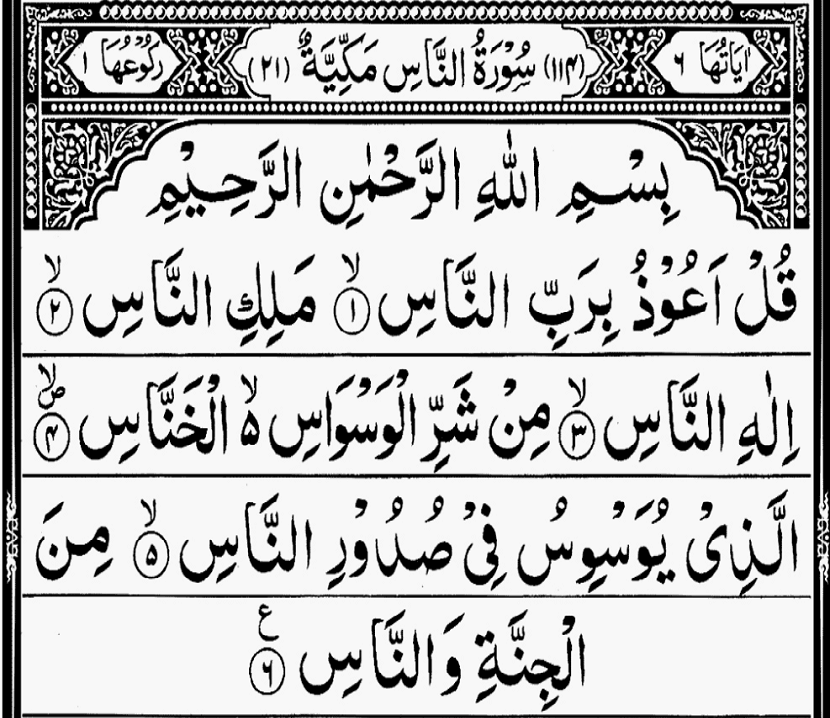 اٰیَاتُهَا ۶ (۱۱۴) سُوْرَةُ النَّاسِ مَكِّیَّةٌ (۲۱) رُكُوْعُهَا ۱
بِسْمِ اللّٰهِ الرَّحْمٰنِ الرَّحِیْمِ
قُلْ اَعُوْذُ بِرَبِّ النَّاسِ ۙ﴿۱﴾ مَلِكِ النَّاسِ ۙ﴿۲﴾
اِلٰهِ النَّاسِ ۙ﴿۳﴾ مِنْ شَرِّ الْوَسْوَاسِ ۙ۵ الْخَنَّاسِ ۪ۙ﴿۴﴾
الَّذِیْ یُوَسْوِسُ فِیْ صُدُوْرِ النَّاسِ ۙ﴿۵﴾ مِنَ
الْجِنَّةِ وَالنَّاسِ ع﴿۶﴾